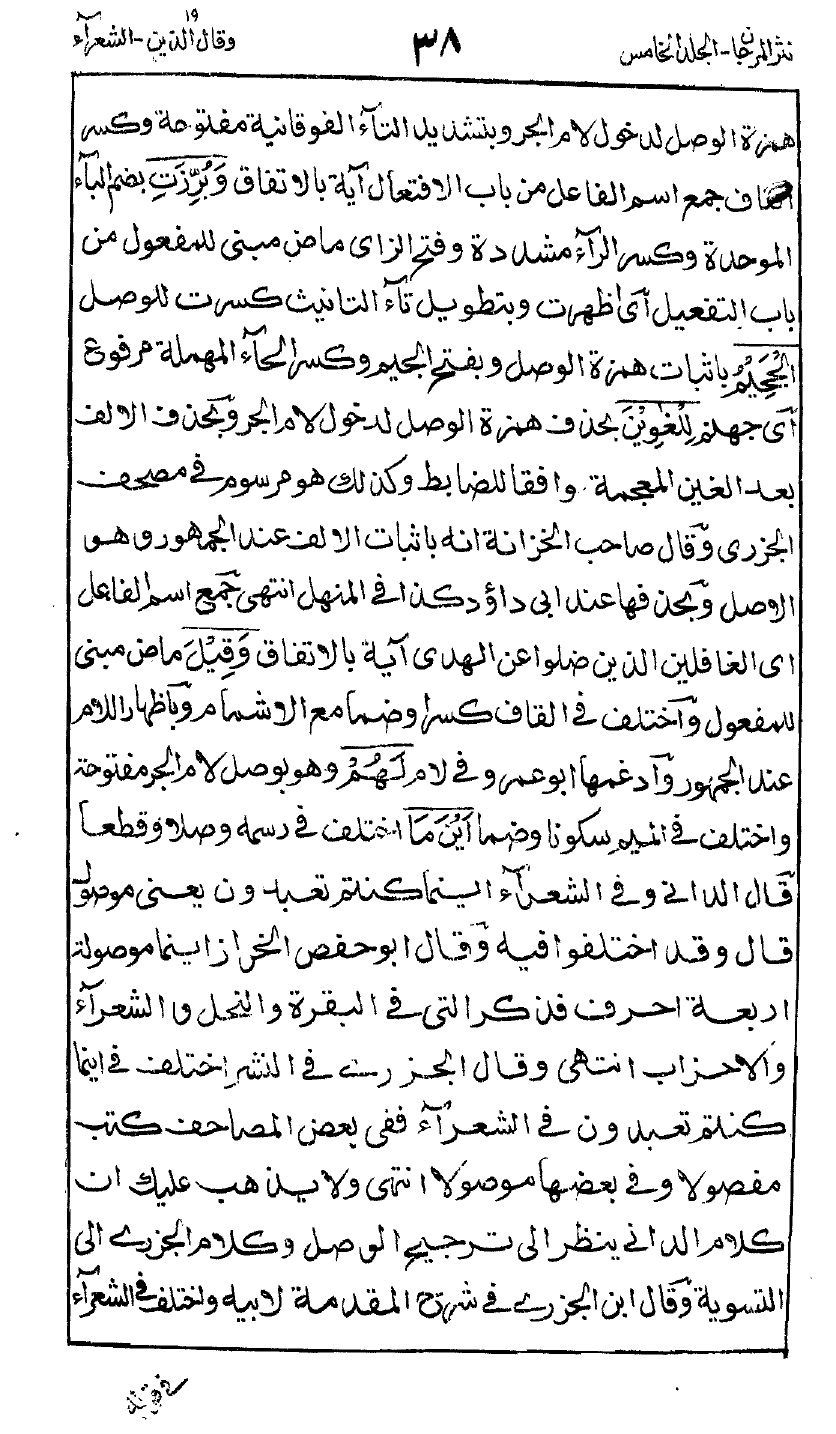 نثر المرجان - الجلد الخامس ٣٨ وقال الذين ١٩ - الشعرآء
همزة الوصل لدخول لام الجر وبتشديد التآء الفوقانية مفتوحة وكسر
القاف جمع اسم الفاعل من باب الافتعال آية بالاتفاق وَبُرِّزَتِ بضم البآء
الموحدة وكسر الرآء مشددة وفتح الزاى ماض مبنى للمفعول من
باب التفعيل أى اظهرت وبتطويل تآء التانيث كسرت للوصل
الْجَحِيْمُ باثبات همزة الوصل وبفتح الجيم وكسر الحآء المهملة مرفوع
أى جهنم لِلْغٰوِيْنَ بحذف همزة الوصل لدخول لام الجر وبحذف الالف
بعد الغين المعجمة وافقا للضابط وكذلك هو مرسوم فى مصحف
الجزرى وقال صاحب الخزانة انه باثبات الالف عند الجمهور وهو
الاصل وبحذفها عند ابى داؤد كذا فى المنهل انتهى جمع اسم الفاعل
اى الغافلين الذين ضلوا عن الهدى آية بالاتفاق وَقِيْلَ ماض مبنى
للمفعول واختلف فى القاف كسرا وضما مع الاشمام وباظهار اللام
عند الجمهور وادغمها ابو عمرو فى لام لَهُمْ وهو بوصل لام الجر مفتوحة
واختلف فى الميم سكونا وضما اَيْنَ مَا اختلف فى رسمه وصلا وقطعا
قال الدانى وفى الشعرآء اينما كنتم تعبدون يعنى موصول
قال وقد اختلفوا فيه وقال ابو حفص الخراز اينما موصولة
اربعة احرف فذكر التى فى البقرة والنحل والشعرآء
والاحزاب انتهى وقال الجزرى فى النشر اختلف فى اينما
كنتم تعبدون فى الشعرآء ففى بعض المصاحف كتب
مفصولا وفى بعضها موصولا انتهى ولا يذهب عليك ان
كلام الدانى ينظر الى ترجيح الوصل وكلام الجزرى الى
التسوية وقال ابن الجزرى فى شرح المقدمة لابيه واختلف فى الشعرآء